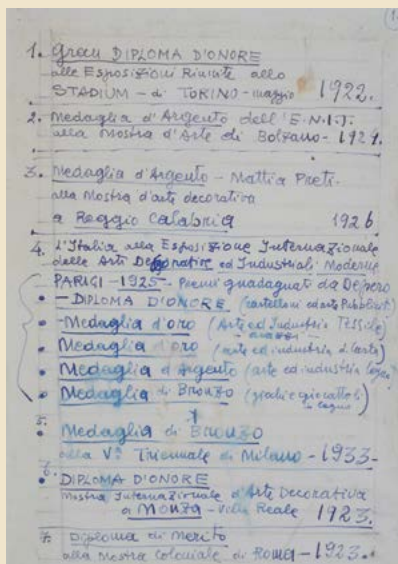 1. Gran DIPLOMA D'ONORE
alle Esposizioni Riunite allo
STADIUM - di TORINO - maggio 1922.
2. Medaglia d'Argento dell'E.N.I.T.
alla Mostra d'Arte di Bolzano - 1924.
3. Medaglia d'Argento - Mattia Preti.
alla Mostra d'arte decorativa
a Reggio Calabria 1926
4. L'Italia alla Esposizione Internazionale
delle Arti Decorative ed Industriali Moderne
PARIGI - 1925 - Premi guadagnati da Depero
• - DIPLOMA D'ONORE (cartelloni ed arte Pubblicit.)
• - Medaglia d'oro (Arte ed Industria Tessile)
• Medaglia d'oro (arte ed industria di Carta)
• Medaglia d'Argento (arte ed industria Legno)
• Medaglia di Bronzo (giochi e giocattoli
in legno)
5. Medaglia di Bronzo
alla Vª Triennale di Milano - 1933 -
6. DIPLOMA D'ONORE
Mostra Internazionale d'Arte Decorativa
a MONZA - Villa Reale 1923.
7. Diploma di Merito
alla Mostra Coloniale di Roma - 1923.